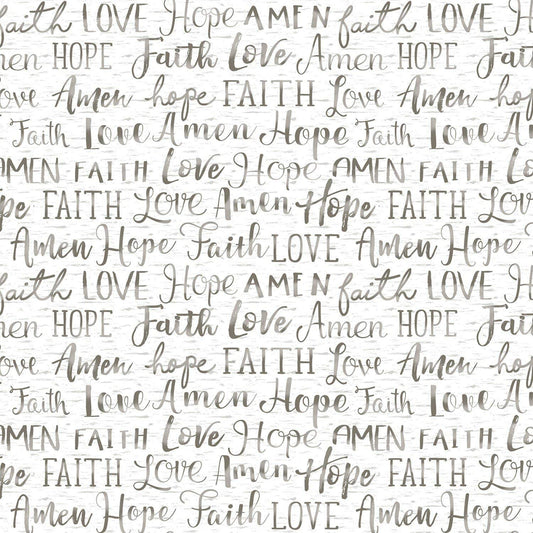 faith LOVE Hope AMEN faith LOVE Hope AMEN
men HOPE Faith Love Amen HOPE Faith
ove Amen hope FAITH Love Amen hop
Faith Love Amen Hope Faith Love A
AMEN FAITH Love Hope AMEN FAITH Lo
pe FAITH Love Amen Hope FAITH Lov
Amen Hope Faith LOVE Amen Hope
faith LOVE Hope AMEN faith LOVE Hope AMEN
men HOPE Faith Love Amen HOPE Fait
ove Amen hope FAITH Love Amen hop
Faith Love Amen Hope Faith Love A
AMEN FAITH Love Hope AMEN FAITH Lo
pe FAITH Love Amen Hope FAITH Lov
Amen Hope Faith LOVE Amen Hope